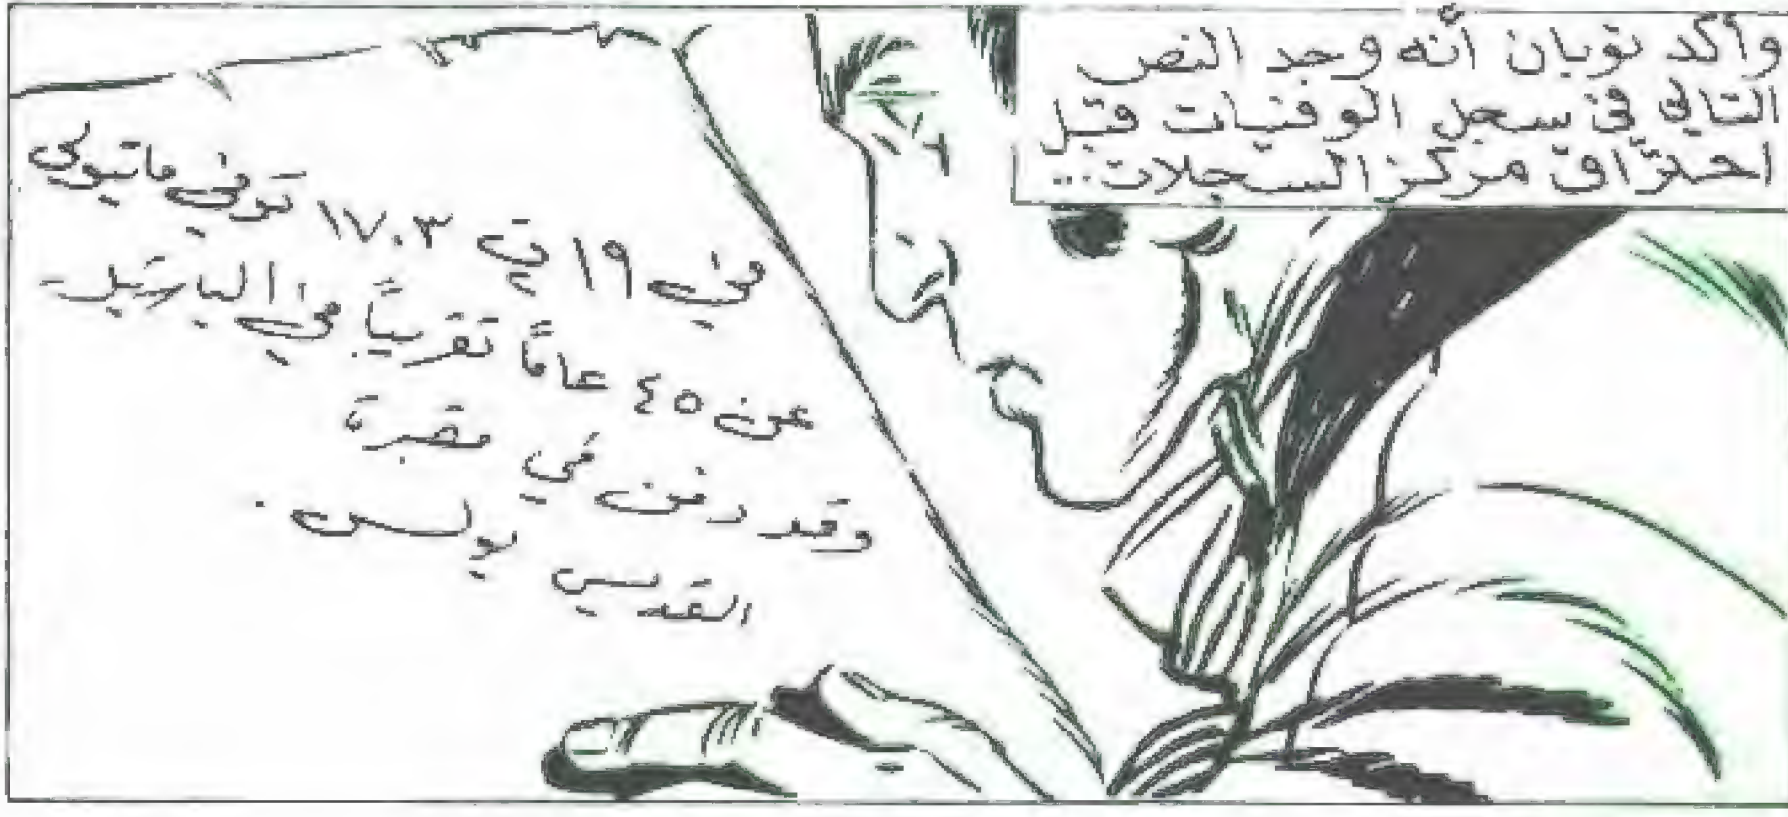 وأكد توبان أنه وجد النص
التالى فى سجل الوفيات قبل
احتراق مركز السجلات...
في ١٩ ت ١٧٠٣ توفي ماتيولي
عن ٤٥ عامًا تقريبًا في الباستيل
وقد دفن في مقبرة
القديس بولس.